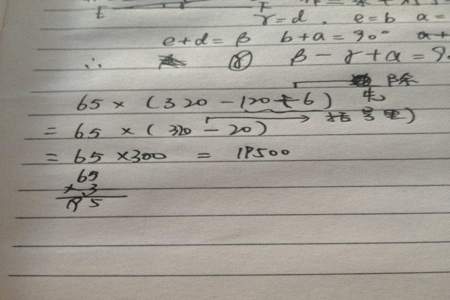 r = d . e = b a =
e + d = β b + a = 90° a +
∴ ⓡ β - r + a = 9
除
65 × (320 - 120 ÷ 6) 先
= 65 × (320 - 20) 括号里)
= 65 × 300 = 19500
65
× 3
195